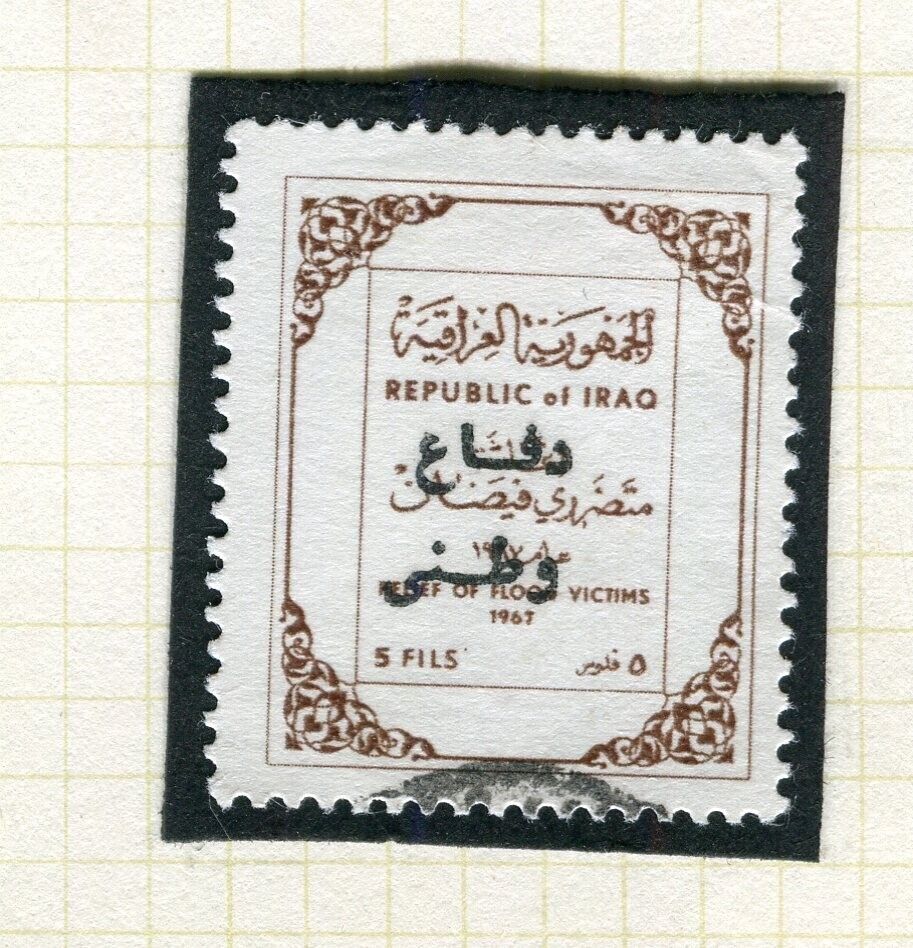 الجمهورية العراقية
REPUBLIC of IRAQ
دفاع
متضرري فيضان
وطني
عام ١٩٦٧
RELIEF OF FLOOD VICTIMS
1967
5 FILS
٥ فلوس